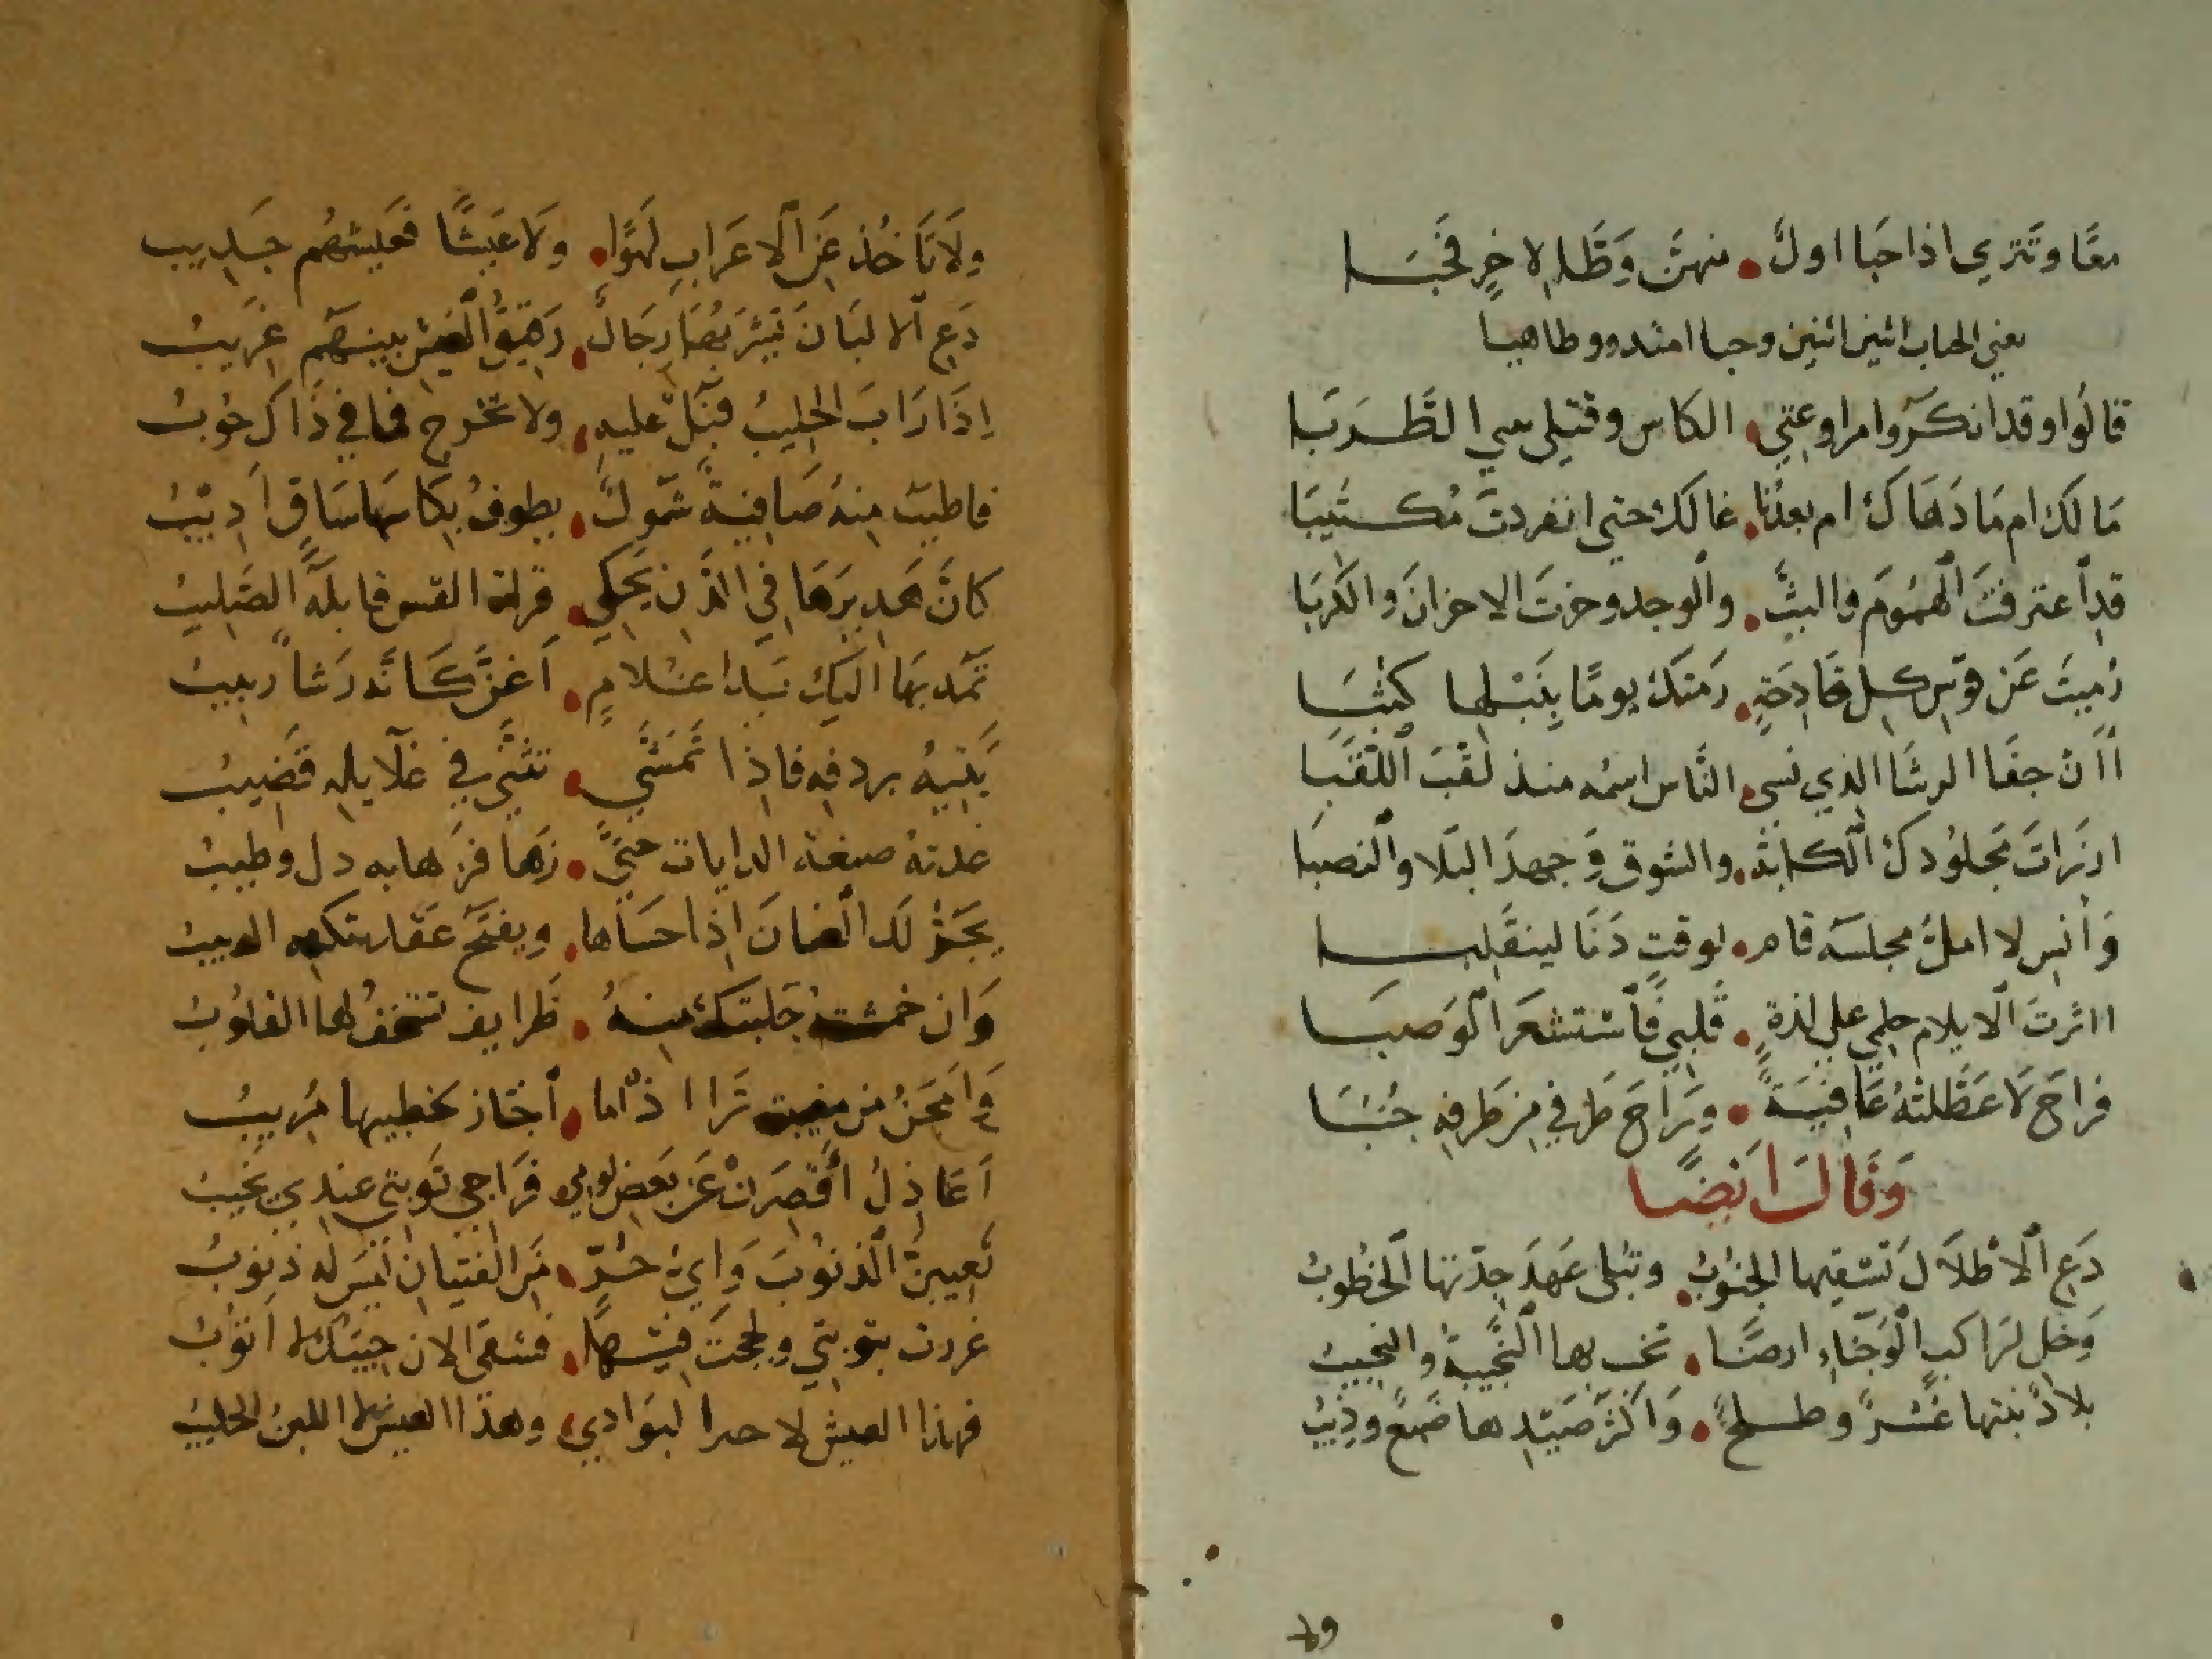 معًا وتترى اذا حبا اولٌ • منهنَّ وَظَلا لاخِرٍ فَحَبَا
يعني الحباب اثنين اثنين وحبا امتد
قالُوا وقد انكَرُوا مراوغتي • الكاس وقتلى الطَّرَبَا
مَا لَكَ ام مَا دَهَاكَ ام بعدُنا • غالك حتى انفردتَ مُكتئِبَا
قد اعترفتَ الهمُومَ والبثَّ • والوجد وحزتَ الاحزانَ والكُرَبَا
رُميتَ عَن قوسِ كلِ فَادِحَةٍ • رَمتكَ يومًا بِنَبْلها كَثَبَا
أَأن جفَا الرشَا الذي نسى • النَّاس اسمُه منذ لقّبَ اللقَبَا
مَجلُودكَ الكابَة • والشوق وَجهدَ البَلا والنصبَا
وَانس لا املُّ مجلسَه قام • لوقتٍ دَنَا لينقَلِبا
ااثرتَ الايلام حلمي على لذةٍ • قلبي فَاستشعَرَ الوَصبَا
فراحَ لا عَطَّلتهُ عَافِيَةٌ • وَرَاحَ طَرفي مِن طَرفِهِ جُنُبَا
وَقَالَ اَيضًا
دَعِ الاطْلاَلَ تَسْقيها الجنُوبُ • وتبلى عَهدَ جِدّتها الخطُوبُ
وَخلِ لرَاكب الوَجنَاءِ ارضًا • تخب بها النَّجيبةُ والنجيبُ
بلادٌ نبتها عُشرٌ وطلحٌ • وَاكثرُ صَيْدِها ضَبعٌ وذِيبُ
ولا
ولا تَاخُذ عَنِ الاعرَابِ لهوًا • ولا عَيشًا فَعَيشهُم جَدِيب
دَعِ الالبَانَ يَشْرَبُهَا رِجَالٌ • رَقِيقُ العَيشِ بينهم غَرِيبُ
اِذا رَابَ الحليبُ فبُلْ عليهِ • ولا تحرج فما في ذَاكَ حُوبُ
فاطيبُ مِنهُ صَافِيةٌ شَمُولٌ • يطوفُ بِكَاسهَا سَاقٍ اَدِيبُ
كانَّ هَدِيرَهَا فِي الدَّنِ يَحكِي • قراةَ القس قابلهُ الصَّلِيبُ
تَمُد بِهَا اليك يَدَا غلامٍ • اَغنَّ كَانَّه رَشأ رَبيبُ
يَتِيهُ بردفِه فاِذا تَمَشَّى • تثنّى فِي غَلايلهِ قَضِيبُ
غذته صبغة الدايات حتى • زَهَا فزهَا به دل وطيبُ
يَجُرُّ لك العنانَ اِذا حَسَاها • ويفتَح عَقد تكته الدبيبُ
وَان جمشته خَلبتكَ منهُ • ظَرايف تُستخفُ لها القلُوبُ
اَعَاذِلُ اقصرِي عَن بَعضِ لومي • فَراجي تَوبَتي عندي يَخيبُ
تَعِيبِينَ الذنُوبَ وَاىُّ حُرٍّ • مِنَ الفتيانِ لَيسَ لَه ذنوبُ
غررت بتوبتي ولججتَ فيها • فشقي الان جيبك لا اَتُوبُ
فهذا العيش لا خيم البَوادي • وهذا العيش لا اللبن الحليبُ